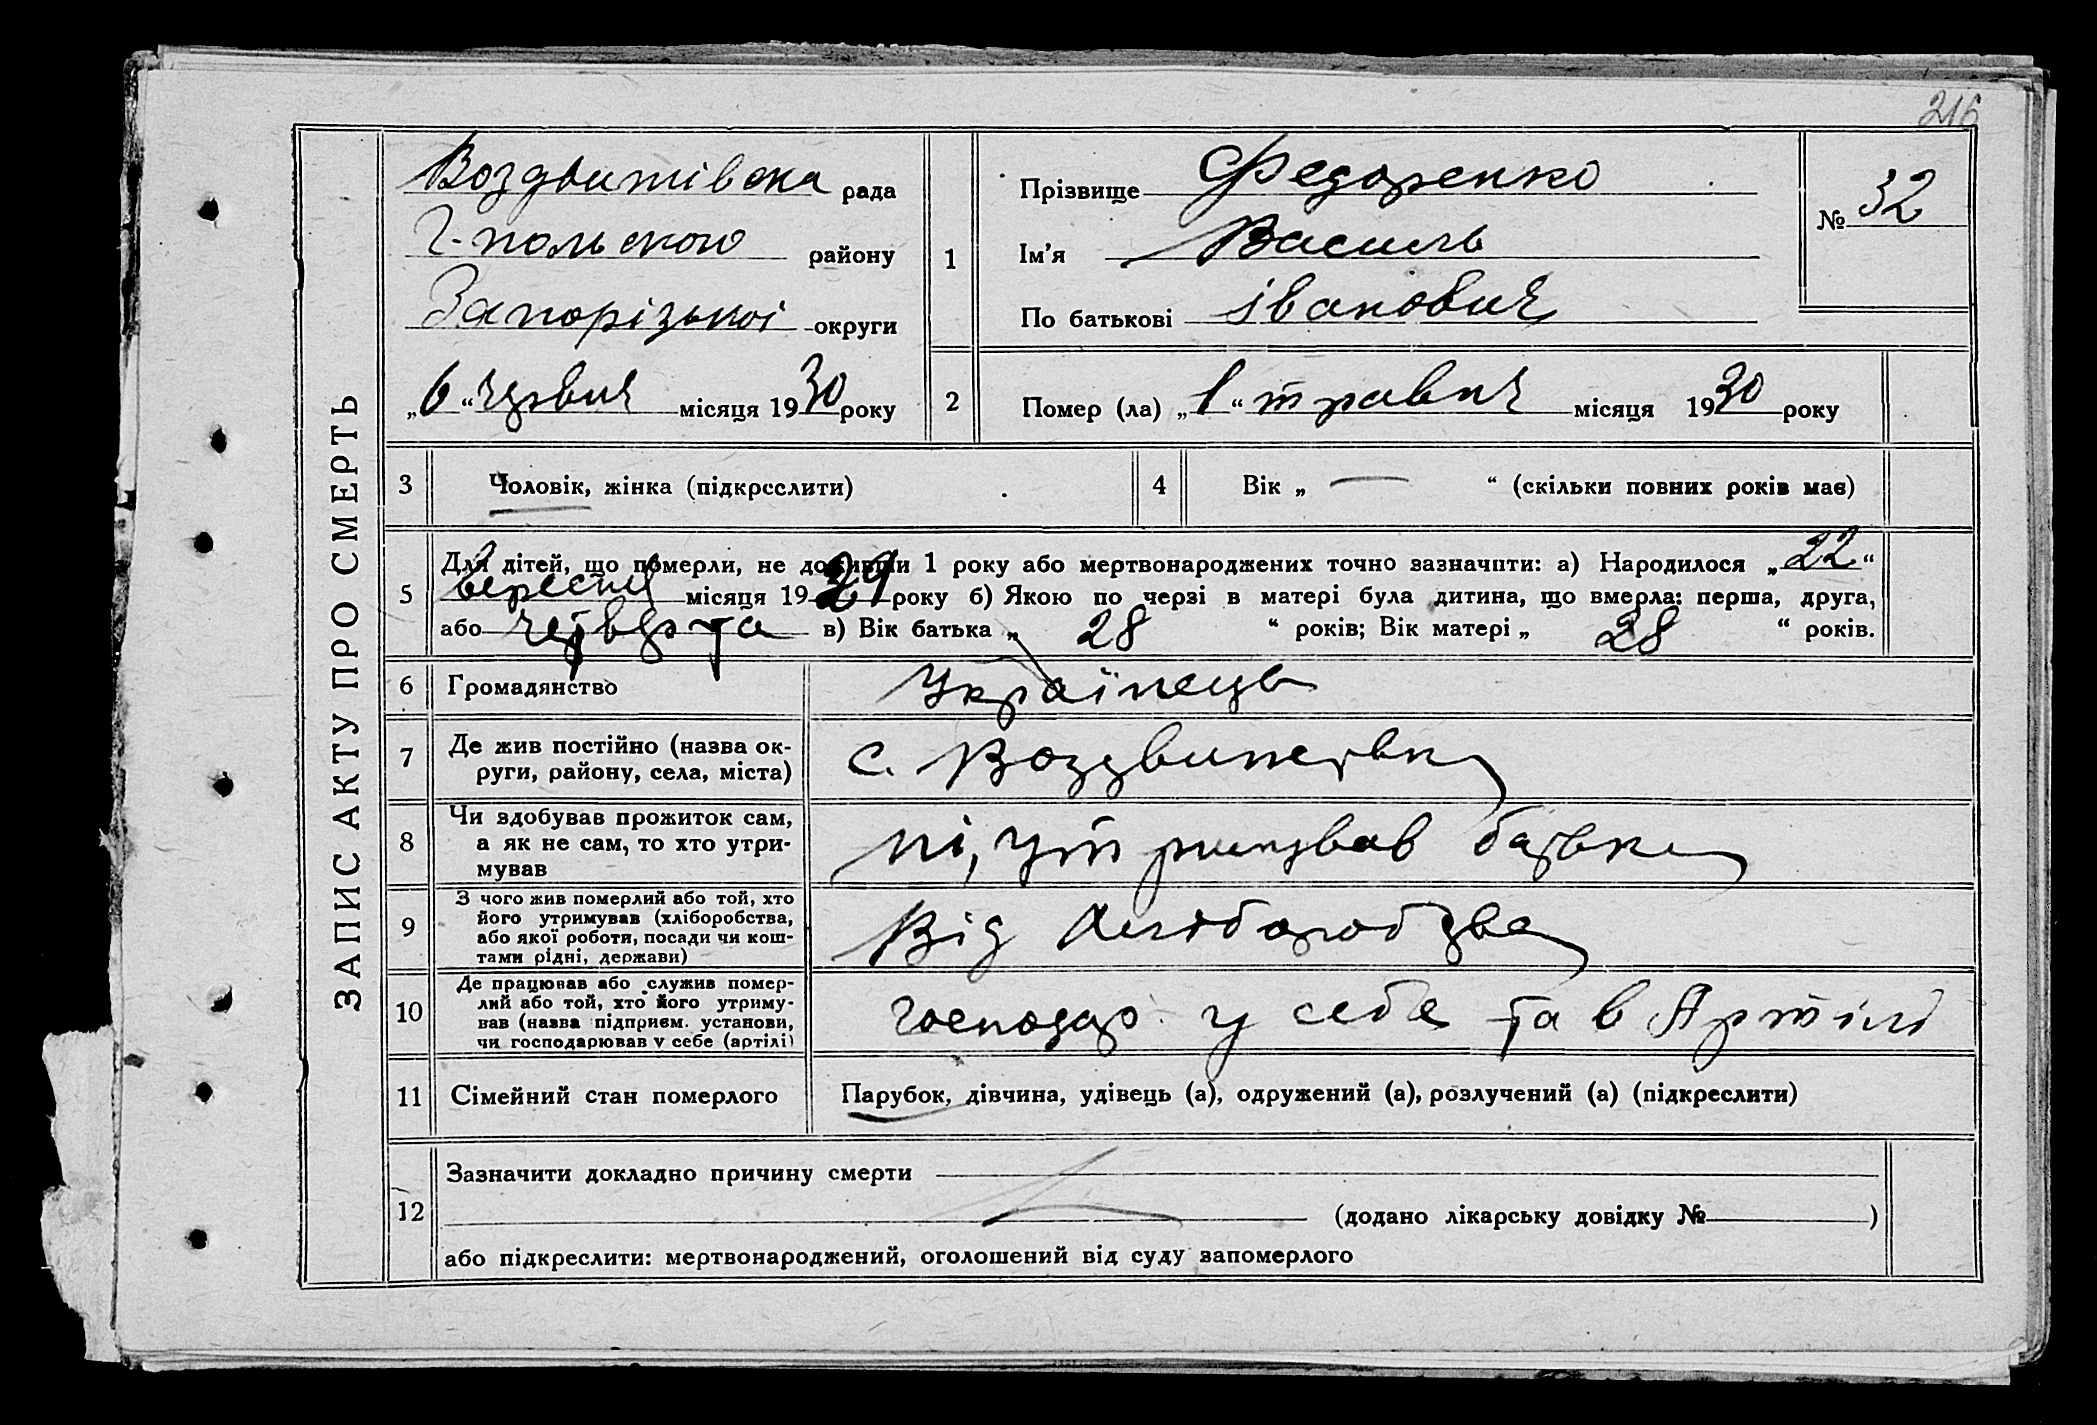 216
ЗАПИС АКТУ ПРО СМЕРТЬ
Воздвижівска рада
Г-польского району
Запорізької округи
„6“ червня місяця 1930 року
1
Прізвище Федоренко
Ім'я Василь
По батькові Іванович
№ 32
2
Помер (ла) „1“ травня місяця 1930 року
3 Чоловік, жінка (підкреслити)
4 Вік „ — “ (скільки повних років має)
5 Для дітей, що померли, не доживши 1 року або мертвонароджених точно зазначити: а) Народилося „22“
вересня місяця 1929 року б) Якою по черзі в матері була дитина, що вмерла: перша, друга,
або четверта в) Вік батька „ 28 “ років; Вік матері „ 28 “ років.
6 Громадянство Українець
7 Де жив постійно (назва ок-
руги, району, села, міста)
с. Воздвижевка
8 Чи здобував прожиток сам,
а як не сам, то хто утри-
мував
ні, утримував батько
9 З чого жив померлий або той, хто
його утримував (хліборобства,
або якої роботи, посади чи кош-
тами рідні, держави)
Від хліборобства
10 Де працював або служив помер-
лий або той, хто його утриму-
вав (назва підприєм. установи,
чи господарював у себе (артілі)
господар у себе та в Артілі
11 Сімейний стан померлого Парубок, дівчина, удівець (а), одружений (а), розлучений (а) (підкреслити)
12 Зазначити докладно причину смерти
(додано лікарську довідку № )
або підкреслити: мертвонароджений, оголошений від суду запомерлого